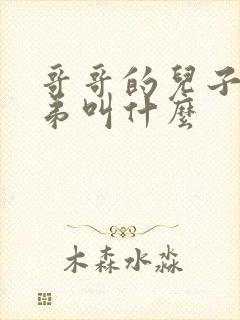 哥哥的兒子
弟叫什麼
木森水淼